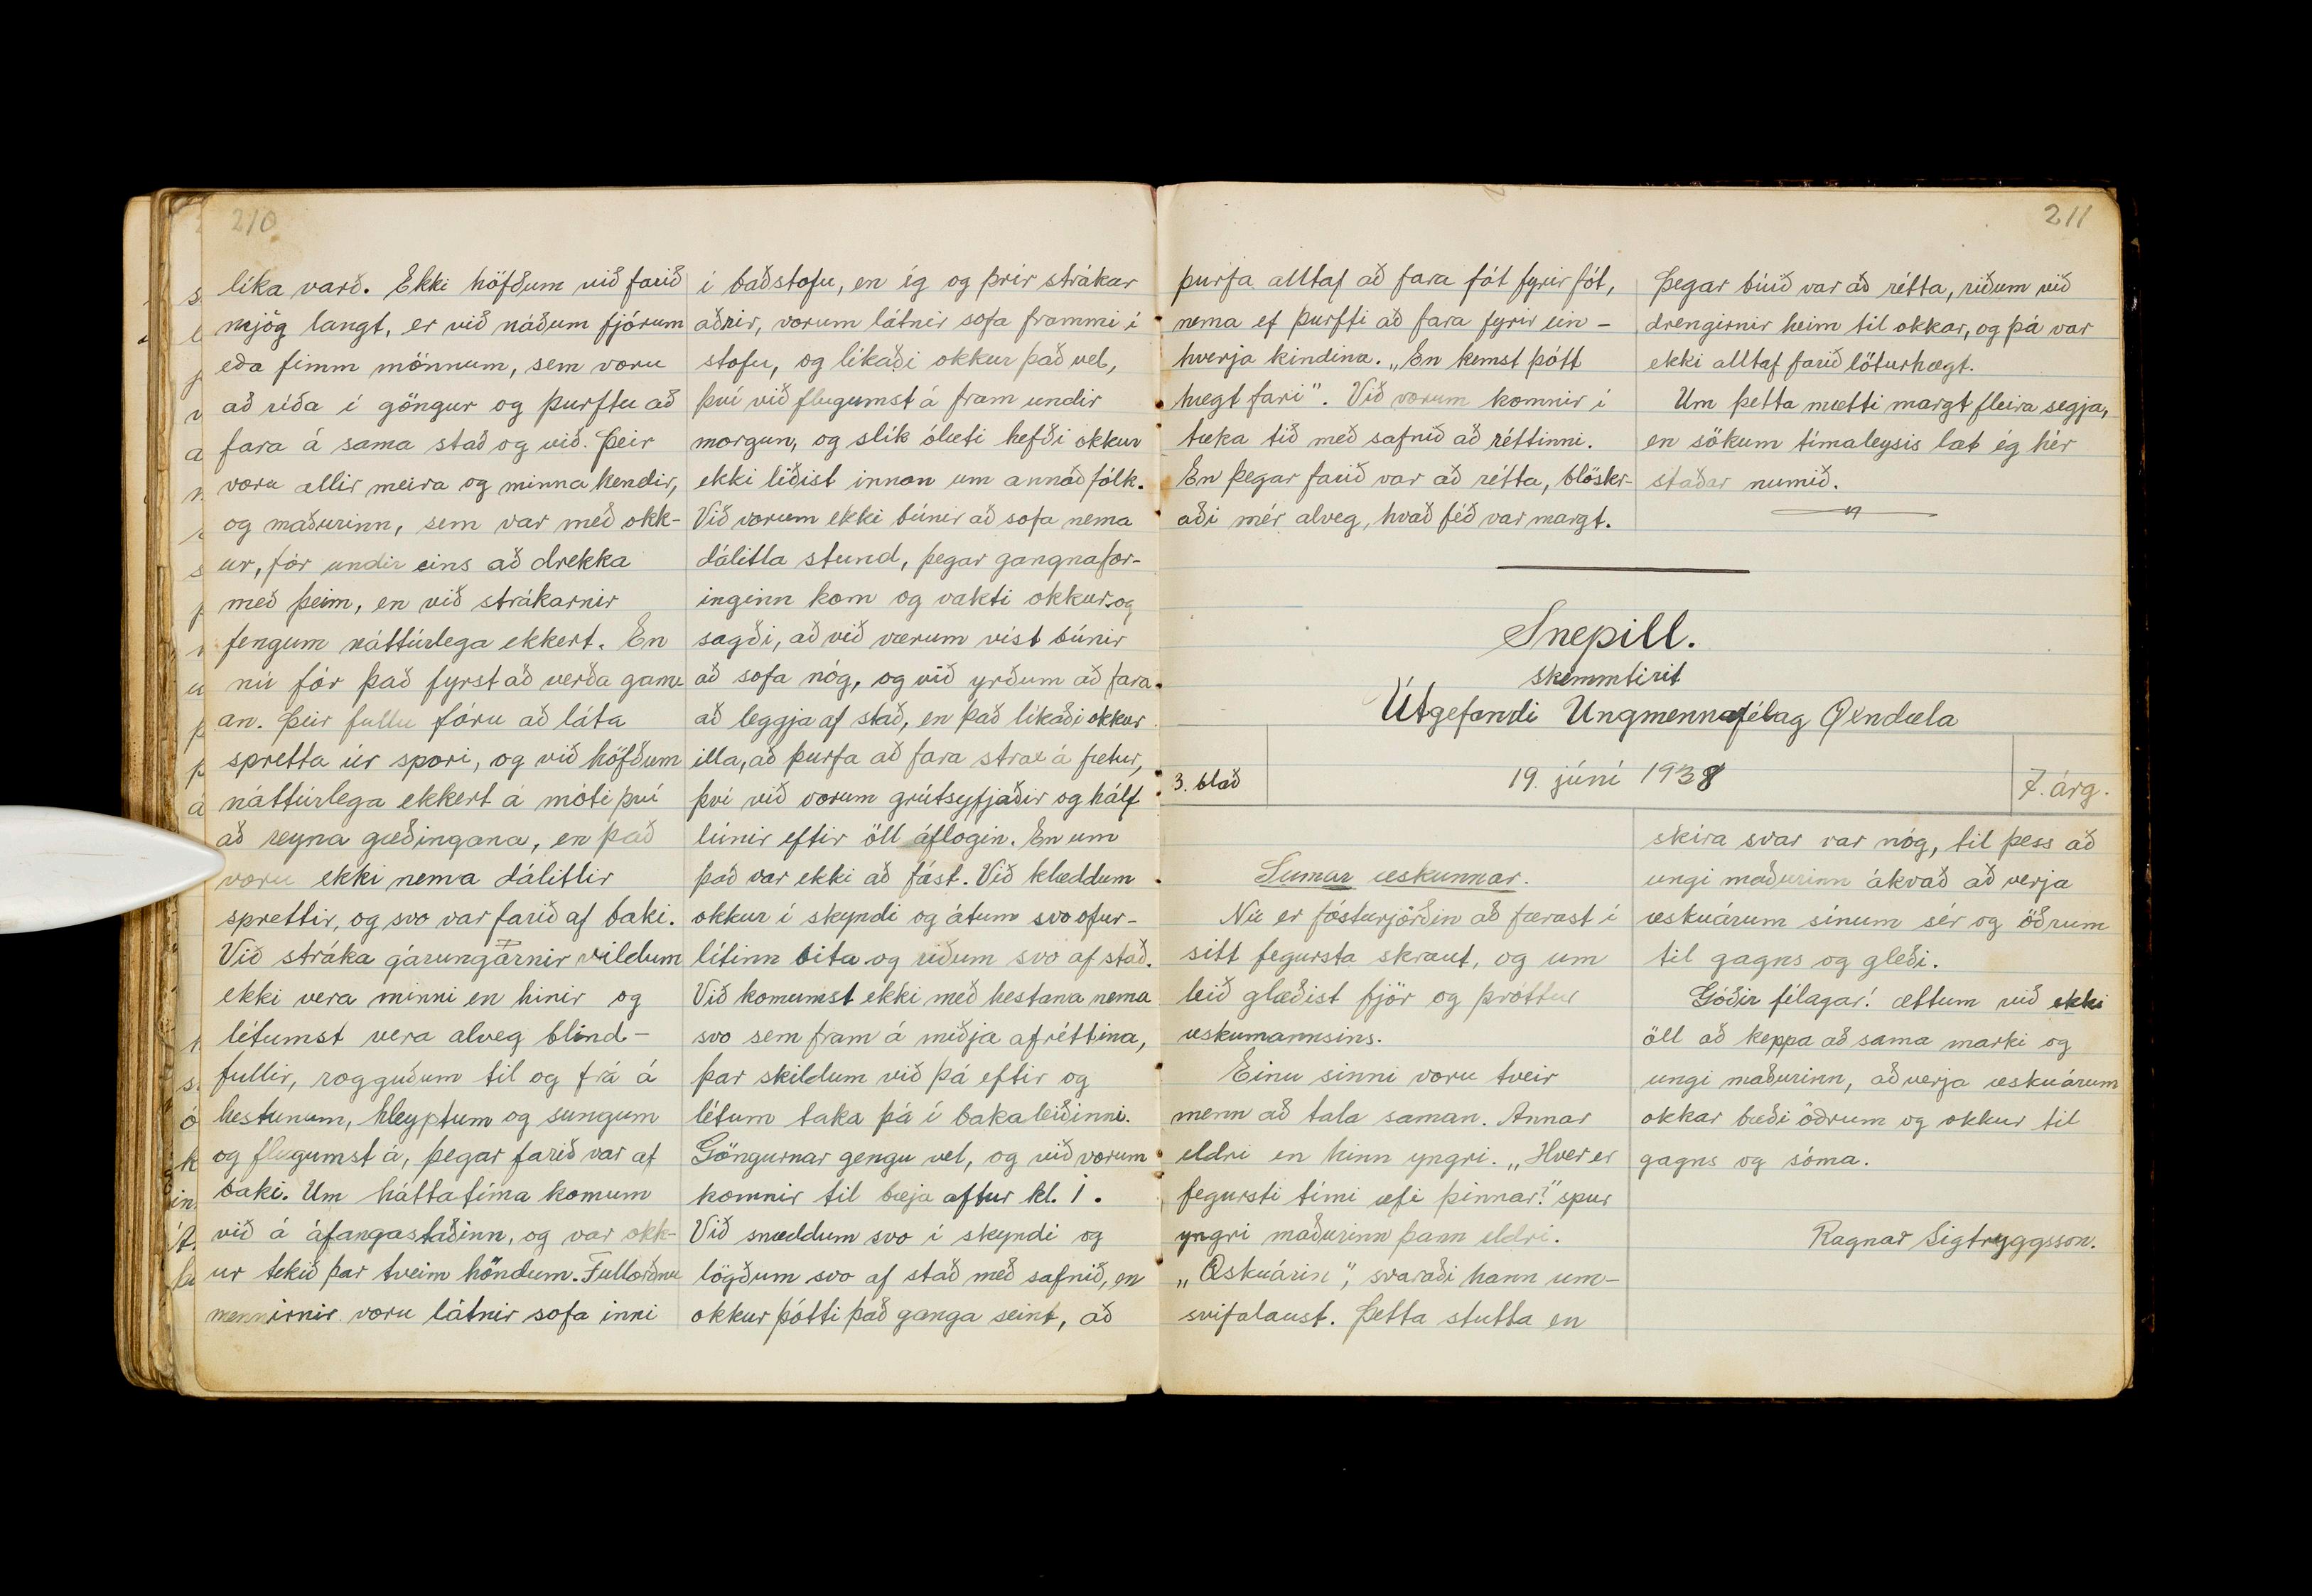 210
líka varð. Ekki höfðum við farið
mjög langt, er við náðum fjórum
eða fimm mönnum, sem voru
að ríða í göngur og þurftu að
fara á sama stað og við. Þeir
voru allir meira og minna kendir,
og maðurinn, sem var með okk-
ur, fór undir eins að drekka
með þeim, en við strákarnir
fengum náttúrlega ekkert. En
nú fór það fyrst að verða gam-
an. Þeir fullu fóru að láta
spretta úr spori, og við höfðum
náttúrlega ekkert á móti því
að reyna gæðingana, en það
voru ekki nema dálitlir
sprettir, og svo var farið af baki.
Við stráka gárungarnir vildum
ekki vera minni en hinir og
létumst vera alveg blind-
fullir, rogguðum til og frá á
hestunum, hleyptum og sungum
og flugumst á, þegar farið var af
baki. Um háttatíma komum
við á áfangastaðinn, og var okk-
ur tekið þar tveim höndum. Fullorðnu
mennirnir voru látnir sofa inni
í baðstofu, en ég og þrír strákar
aðrir, vorum látnir sofa frammi í
stofu, og líkaði okkur það vel,
því við flugumst á fram undir
morgun, og slík ólæti hefði okkur
ekki liðist innan um annað fólk.
Við vorum ekki búnir að sofa nema
dálitla stund, þegar gangnafor-
inginn kom og vakti okkur og
sagði, að við værum víst búnir
að sofa nóg, og við yrðum að fara
að leggja af stað, en það líkaði okkur
illa, að þurfa að fara strax á fætur,
því við vorum grútsyfjaðir og hálf
lúnir eftir öll áflogin. En um
það var ekki að fást. Við klæddum
okkur í skyndi og átum svo ofur-
lítinn bita og riðum svo af stað.
Við komumst ekki með hestana nema
svo sem fram á miðja afréttina,
þar skildum við þá eftir og
létum taka þá í bakaleiðinni.
Göngurnar gengu vel, og við vorum
komnir til bæja aftur kl. 1.
Við snæddum svo í skyndi og
lögðum svo af stað með safnið, en
okkur þótti það ganga seint, að
211
þurfa alltaf að fara fót fyrir fót,
nema ef þurfti að fara fyrir ein-
hverja kindina. „En kemst þótt
hægt fari". Við vorum komnir í
tæka tíð með safnið að réttinni.
En þegar farið var að rétta, blöskr-
aði mér alveg, hvað féð var margt.
Þegar búið var að rétta, riðum við
drengirnir heim til okkar, og þá var
ekki alltaf farið löturhægt.
Um þetta mætti margt fleira segja,
en sökum tímaleysis læt ég hér
staðar numið.
Snepill.
skemmtirit
Útgefandi Ungmennafélag Öxndæla
3. blað
19. júní 1938
7. árg.
Sumar æskunnar.
Nú er fósturjörðin að færast í
sitt fegursta skraut, og um
leið glæðist fjör og þróttur
æskumannsins.
Einu sinni voru tveir
menn að tala saman. Annar
eldri en hinn yngri. „Hver er
fegursti tími æfi þinnar?" spur
yngri maðurinn þann eldri.
„Æskuárin", svaraði hann um-
svifalaust. Þetta stutta en
skíra svar var nóg, til þess að
ungi maðurinn ákvað að verja
æskuárum sínum sér og öðrum
til gagns og gleði.
Góðir félagar! ættum við ekki
öll að keppa að sama marki og
ungi maðurinn, að verja æskuárum
okkar bæði öðrum og okkur til
gagns og sóma.
Ragnar Sigtryggsson.